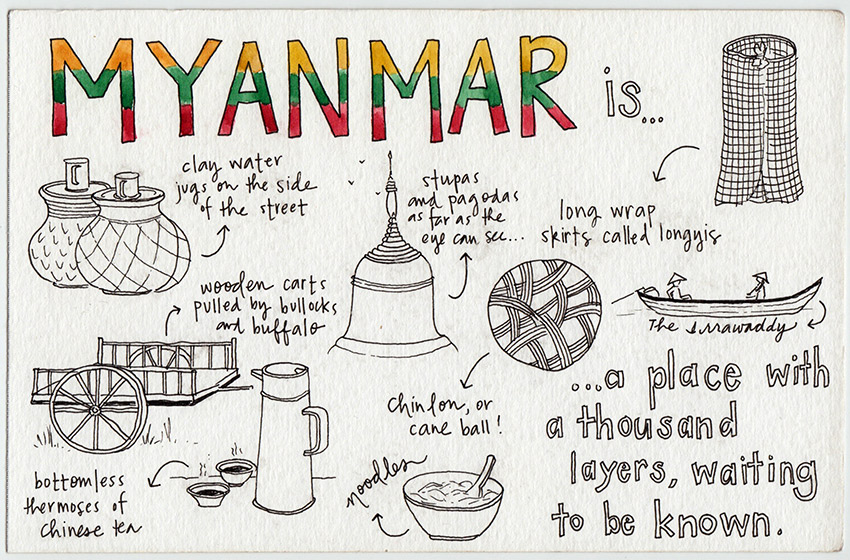 MYANMAR is...
clay water
jugs on the side
of the street
stupas
and pagodas
as far as the
eye can see...
long wrap
skirts called longyis
wooden carts
pulled by bullocks
and buffalo
The Irrawaddy
Chinlon, or
cane ball!
...a place with
a thousand
layers, waiting
to be known.
bottomless
thermoses of
chinese tea
noodles